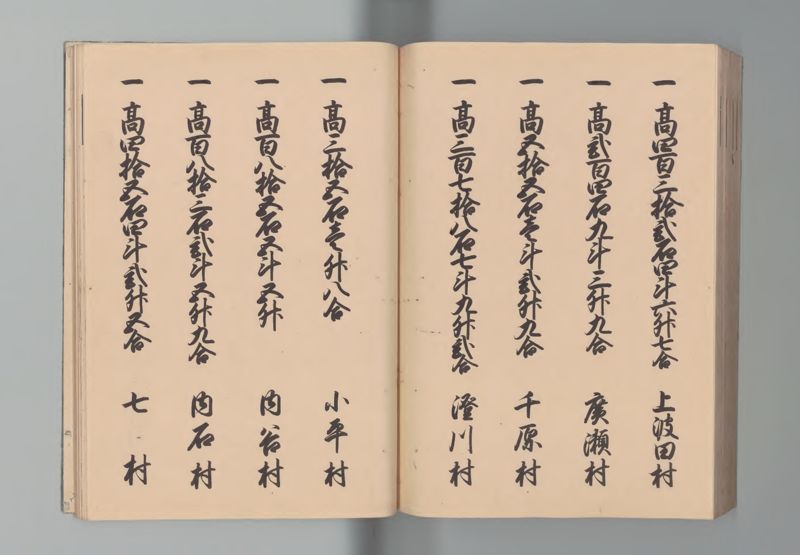 一 高四百三拾弐石四斗六升七合 上波田村
一 高弐百四石九斗三升九合 廣瀬村
一 高五拾五石壱斗弐升九合 千原村
一 高三百七拾八石七斗九升弐合 澄川村
一 高三拾五石壱升八合 小平村
一 高百八拾五石五斗五升 内谷村
一 高百八拾三石弐斗五升九合 内石村
一 高四拾五石四斗弐升五合 七村